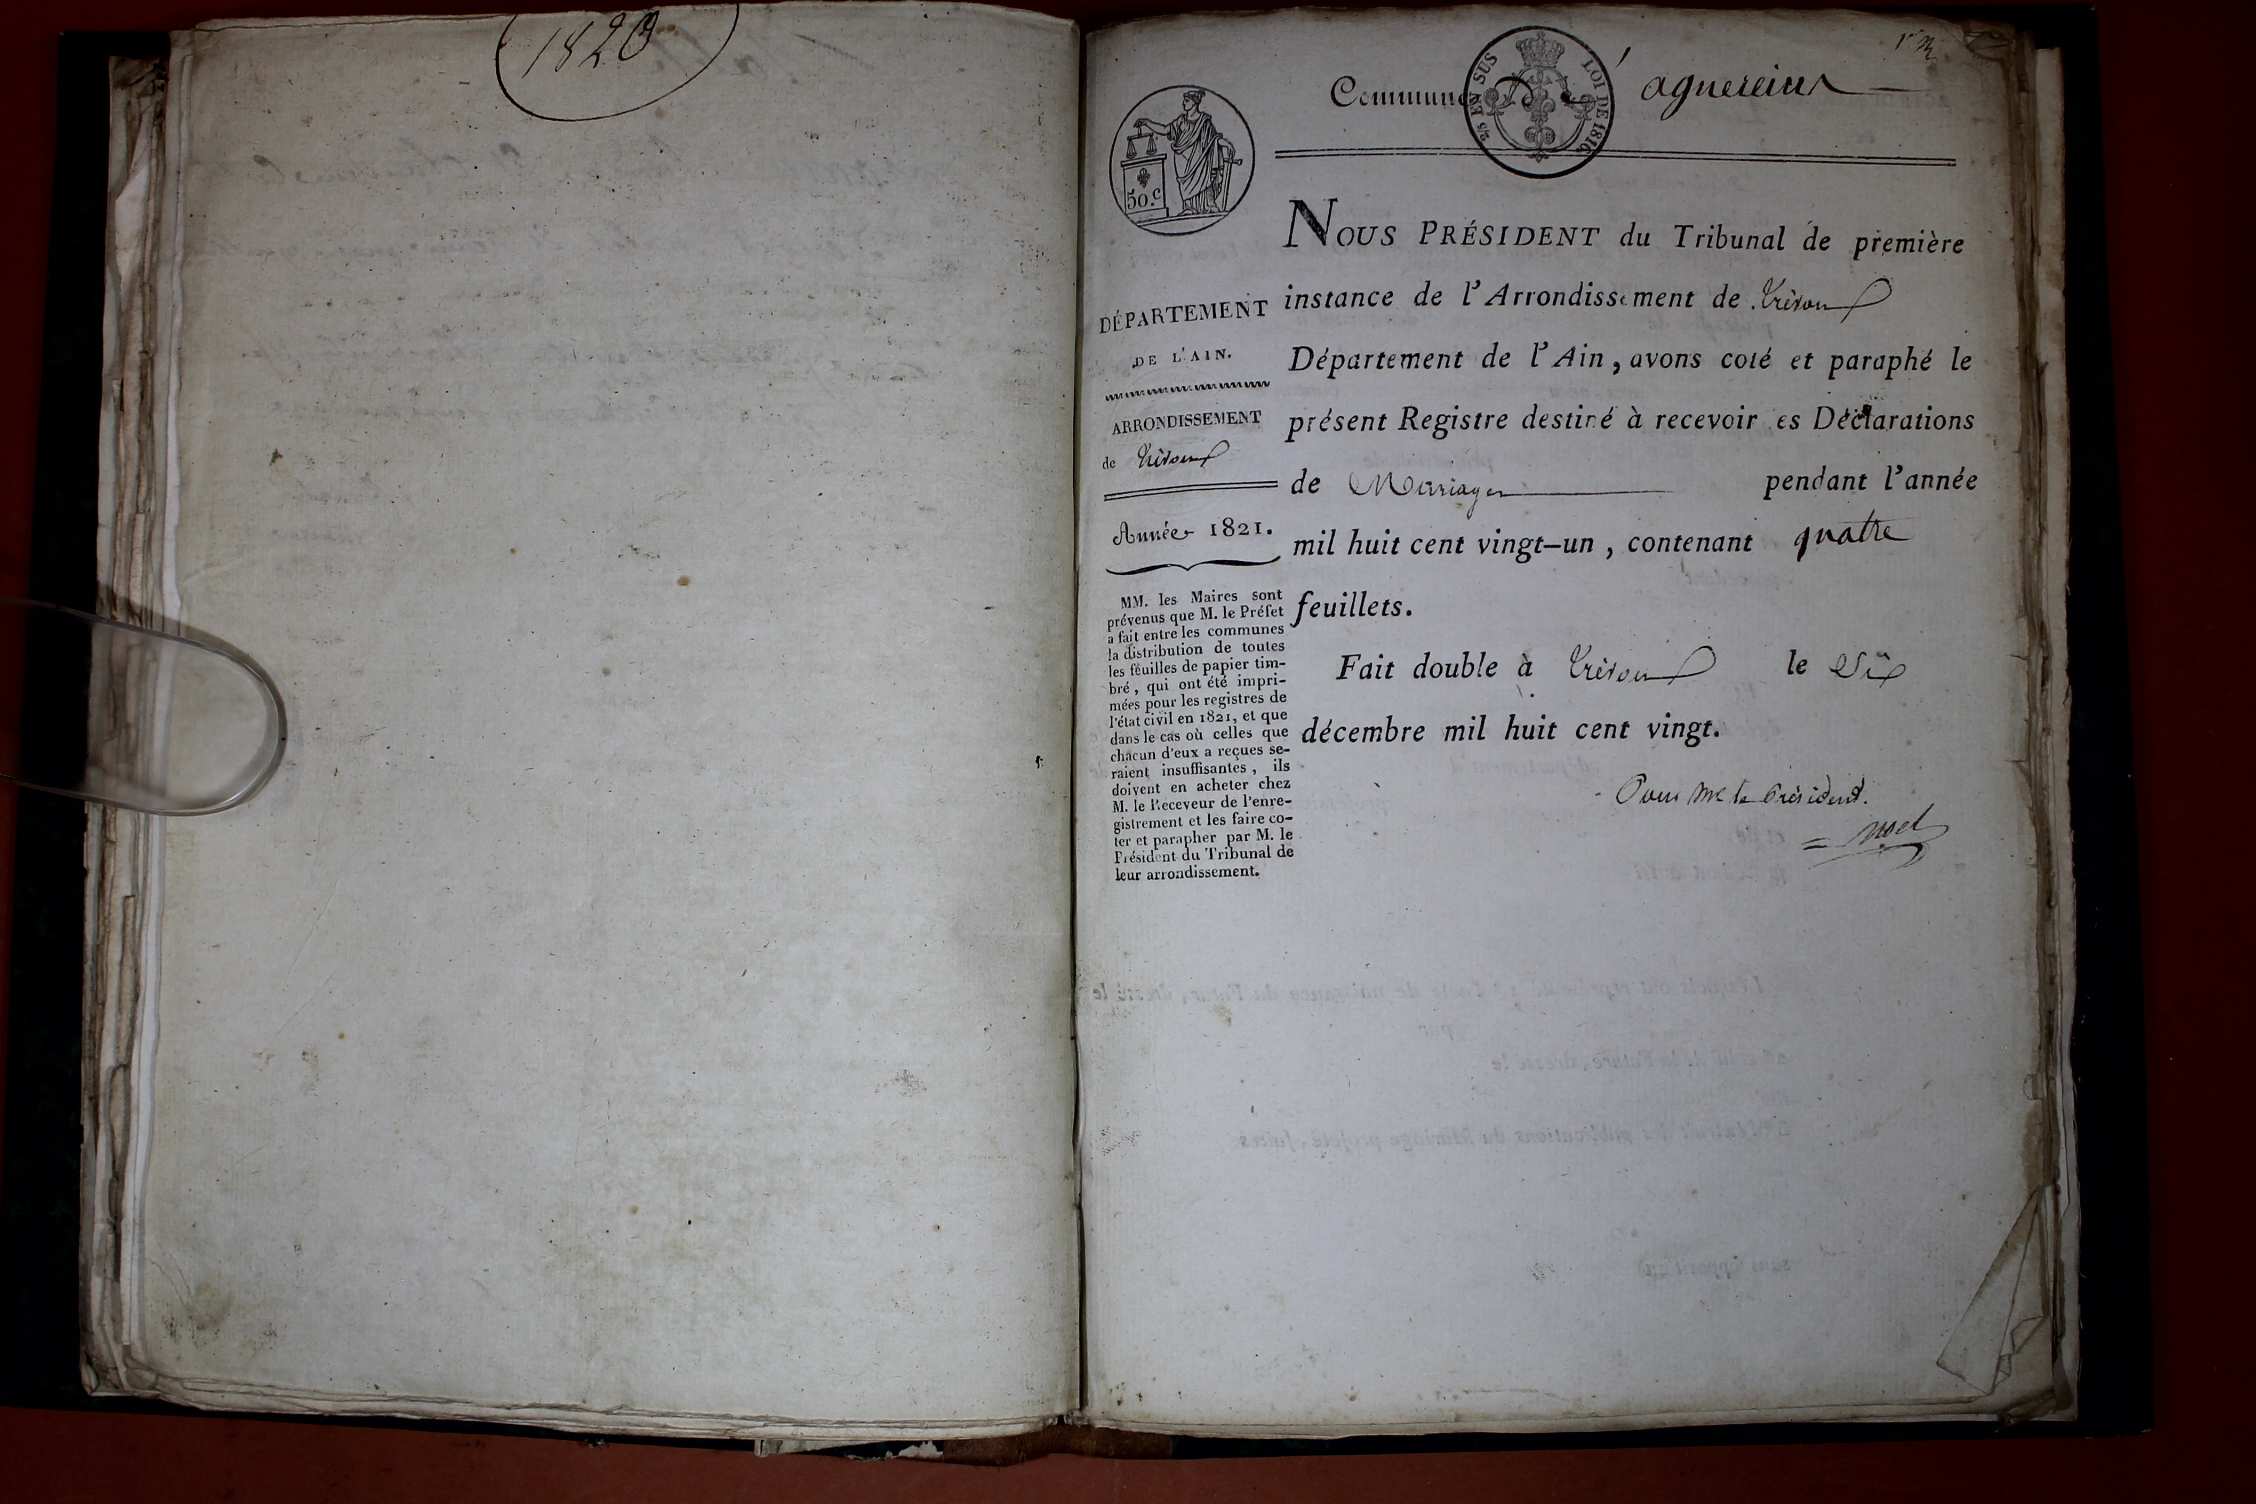 1820
1er
Commune D'agnereins
25 EN SUS
LOI DE 1816.
50.c
NOUS PRÉSIDENT du Tribunal de première
instance de l'Arrondissement de Trévoux
Département de l'Ain, avons coté et paraphé le
présent Registre destiné à recevoir es Déclarations
de Mariages pendant l'année
mil huit cent vingt-un, contenant quatre
feuillets.
Fait double à Trévoux le Six
décembre mil huit cent vingt.
Pour Mr le Président.
Noel
DÉPARTEMENT
DE L'AIN.
ARRONDISSEMENT
de Trévoux
Année 1821.
MM. les Maires sont
prévenus que M. le Préfet
a fait entre les communes
la distribution de toutes
les feuilles de papier tim-
bré, qui ont été impri-
mées pour les registres de
l'état civil en 1821, et que
dans le cas où celles que
chacun d'eux a reçues se-
raient insuffisantes, ils
doivent en acheter chez
M. le Receveur de l'enre-
gistrement et les faire co-
ter et parapher par M. le
Président du Tribunal de
leur arrondissement.